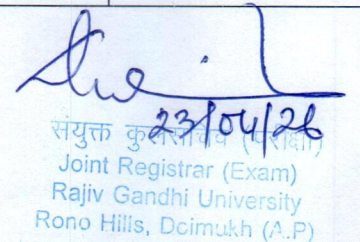 23/04/26
संयुक्त कुलसचिव (परीक्षा)
Joint Registrar (Exam)
Rajiv Gandhi University
Rono Hills, Doimukh (A.P)